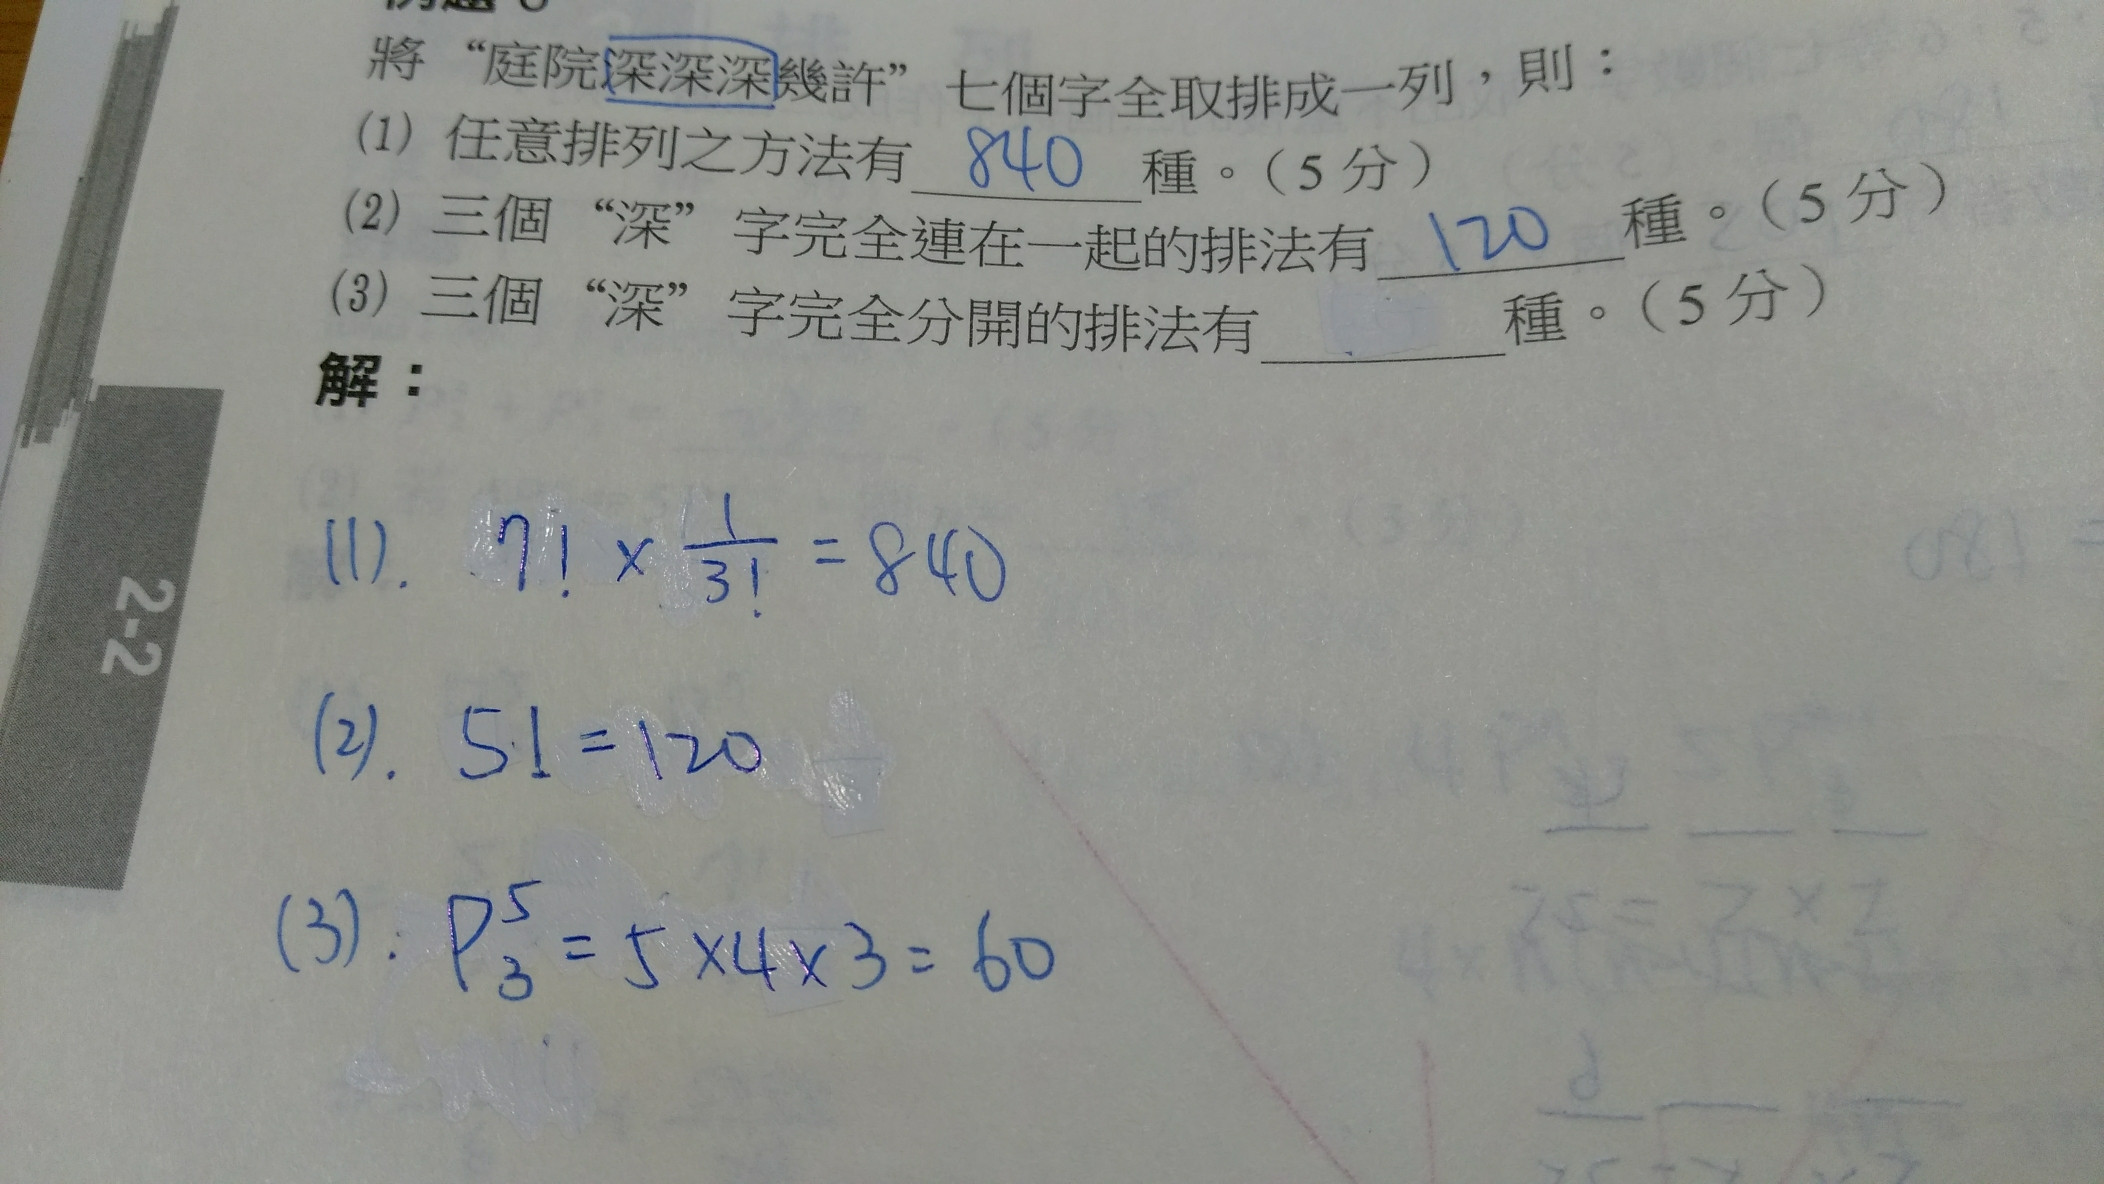 例題
將“庭院深深深幾許”七個字全取排成一列，則：
(1) 任意排列之方法有 840 種。（5 分）
(2) 三個“深”字完全連在一起的排法有 120 種。（5 分）
(3) 三個“深”字完全分開的排法有 種。（5 分）
解：
(1). 7! × 1/3! = 840
(2). 5! = 120
(3). P⁵₃ = 5 × 4 × 3 = 60
2-2